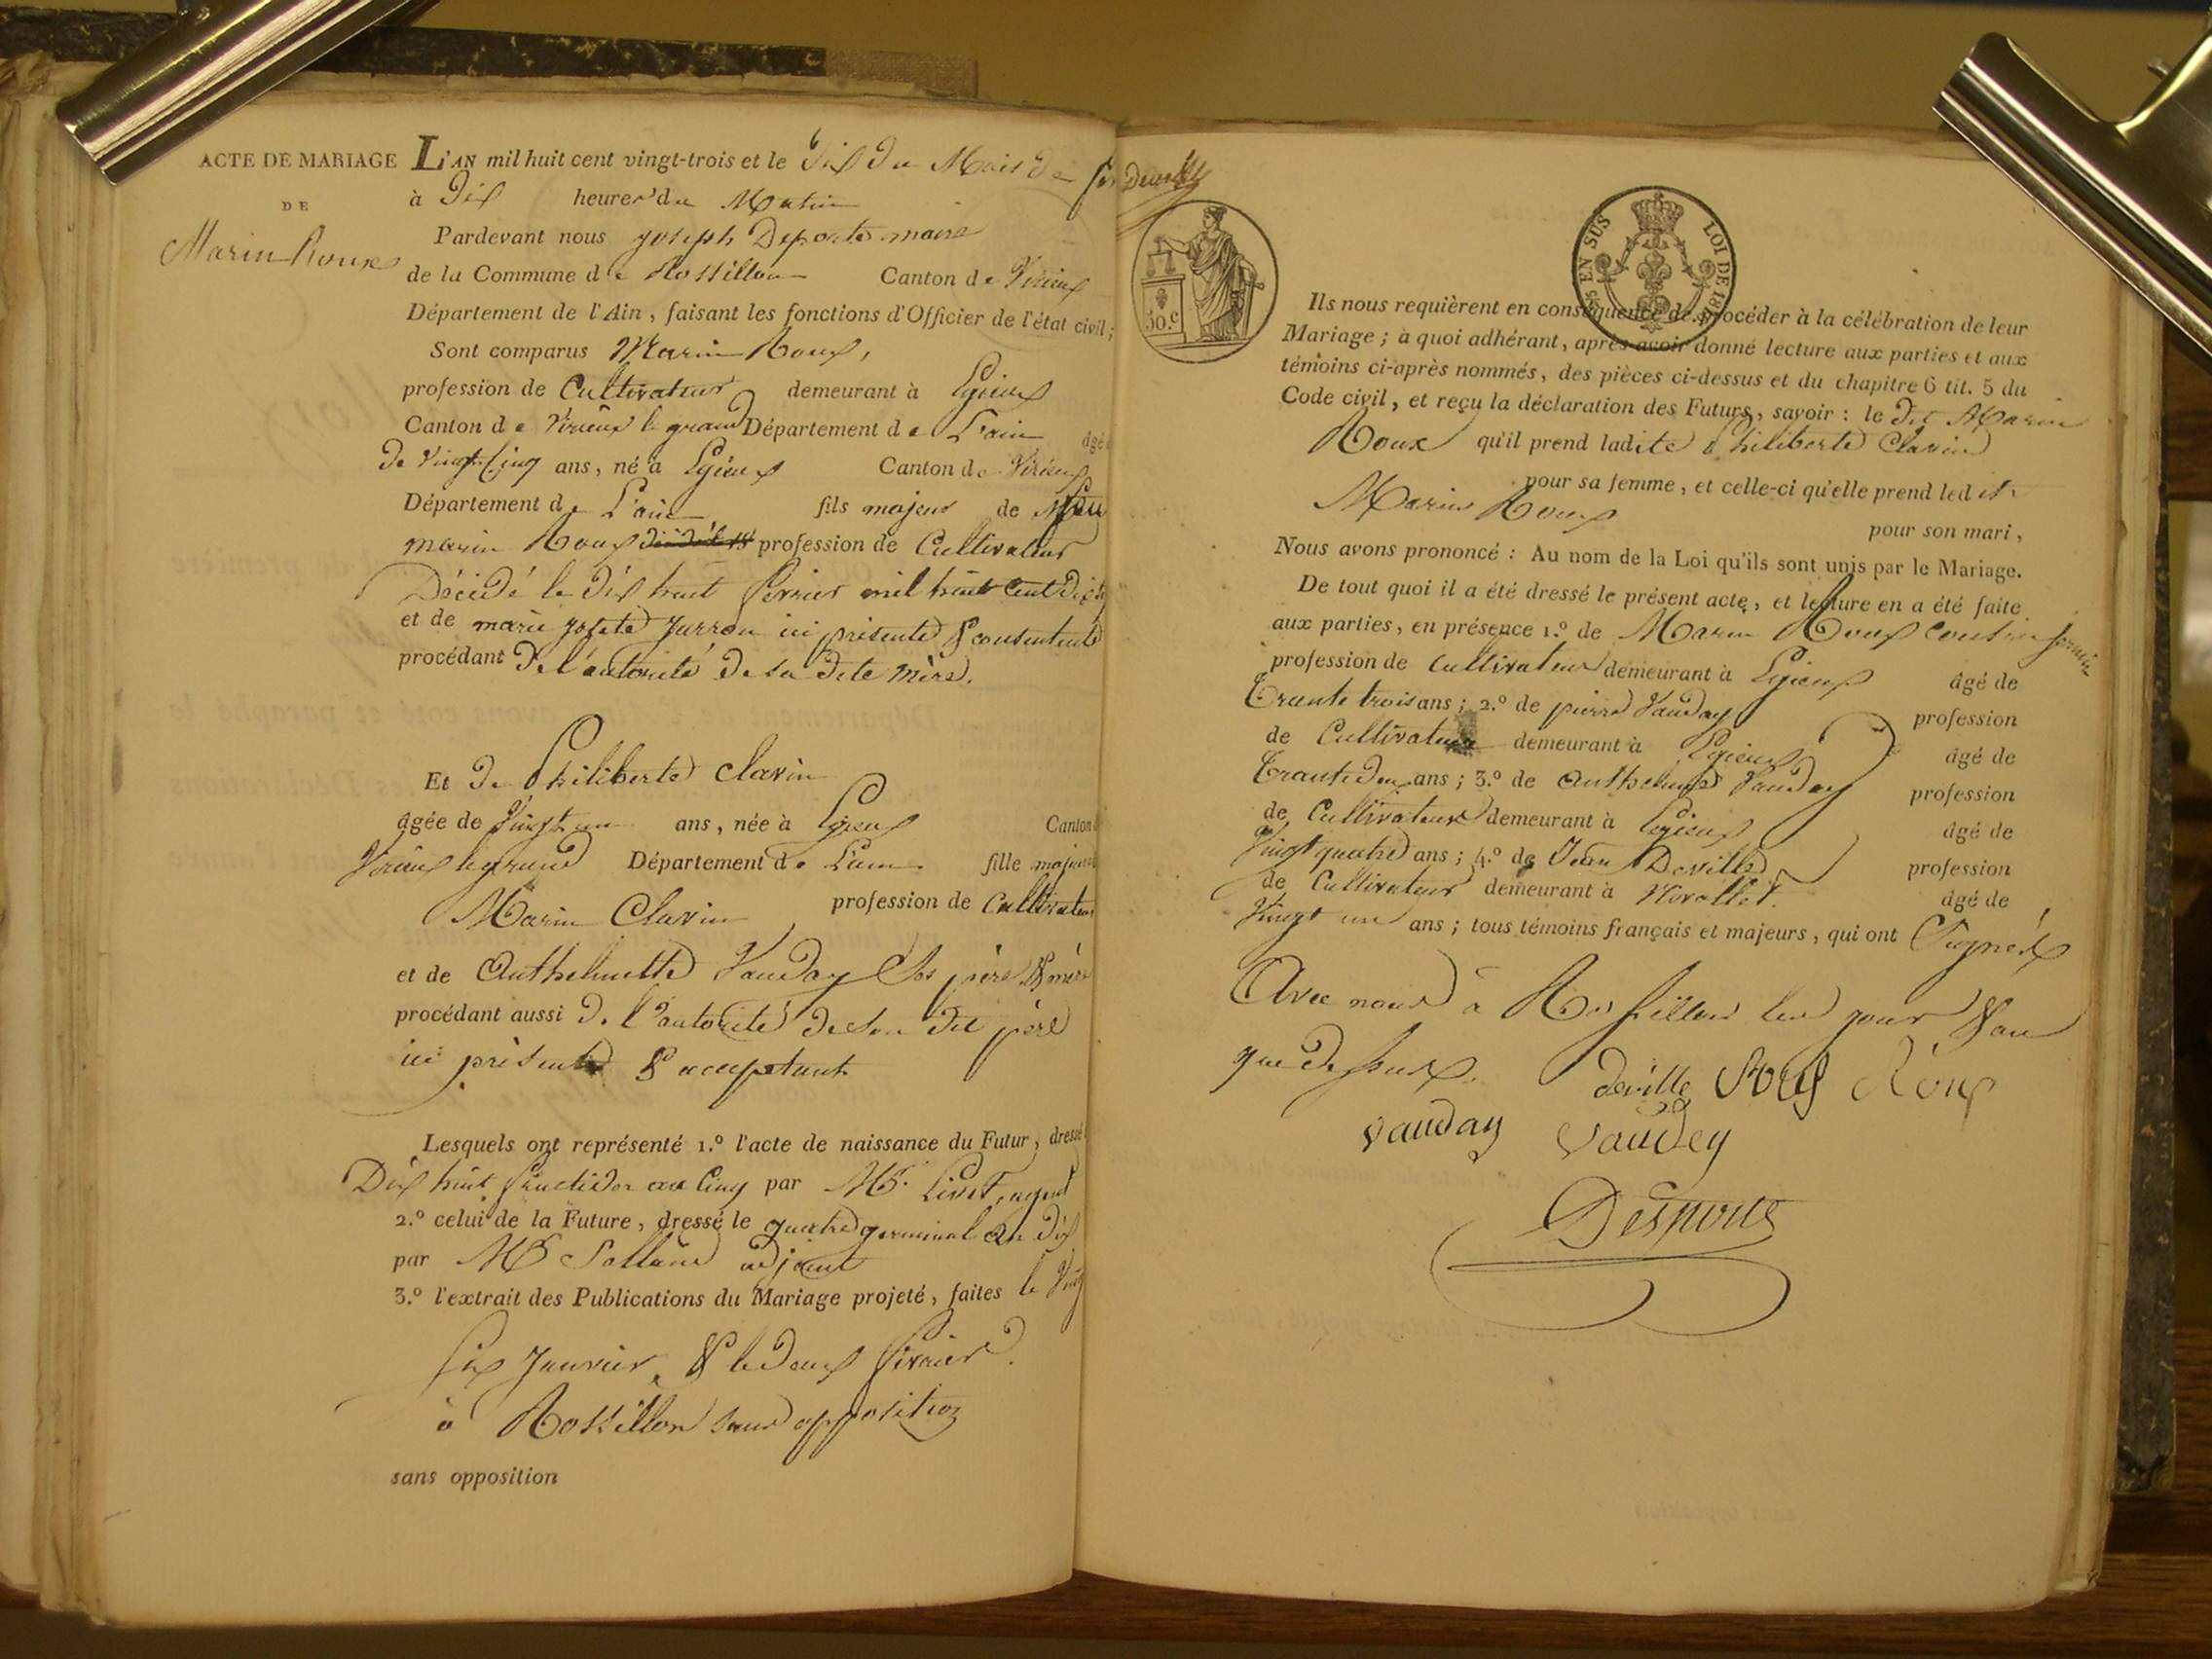 ACTE DE MARIAGE
DE
Marin Roux
L'AN mil huit cent vingt-trois et le Dix du Mois de
à Dix heures du Matin
Pardevant nous joseph Deporte maire
de la Commune de Rossillon Canton de Virieux
Département de l'Ain, faisant les fonctions d'Officier de l'état civil;
Sont comparus Marin Roux,
profession de Cultivateur demeurant à Egieux
Canton de Virieux le grand Département de L'ain âgé
de vingt Cinq ans, né à Egieux Canton de Virieux
Département de L'ain fils majeur de
marin Roux profession de Cultivateur
Décédé le dix huit fevrier mil huit Cent
et de marie josete Jurron ici présente & consentente
procédant De l'autorité De sa Dite mère.
Et De Philiberte Clavin
âgée de Vingt un ans, née à Egieux Canton
Virieux legrand Département de L'ain fille majeure
Marin Clavin profession de Cultivateur
et de Anthelmette Vauday Ses père & mère
procédant aussi De l'autorité De son Dit père
ici présent & acceptant
Lesquels ont représenté 1.º l'acte de naissance du Futur, dressé
Dix huit fructidor an Cinq par Mr. Livet, agent
2.º celui de la Future, dressé le quatre germinal an Dix
par Mr adjoint
3.º l'extrait des Publications du Mariage projeté, faites le Vingt
six Janvier, & le Deux fevrier.
à Rossillon sans opposition
sans opposition
50.c
EN SUS LOI DE 18
Ils nous requièrent en conséquence de procéder à la célébration de leur
Mariage; à quoi adhérant, après avoir donné lecture aux parties et aux
témoins ci-après nommés, des pièces ci-dessus et du chapitre 6 tit. 5 du
Code civil, et reçu la déclaration des Futurs, savoir: le dit Marin
Roux qu'il prend ladite Philiberte Clavin
pour sa femme, et celle-ci qu'elle prend ledit
Marin Roux
pour son mari,
Nous avons prononcé: Au nom de la Loi qu'ils sont unis par le Mariage.
De tout quoi il a été dressé le présent acte, et lecture en a été faite
aux parties, en présence 1.º de Marin Roux Cousin germain
profession de Cultivateur demeurant à Egieux âgé de
Trante trois ans; 2.º de pierre Vauday profession
de Cultivateur demeurant à Egieux âgé de
Trante Deux ans; 3.º de Anthelme Vauday profession
de Cultivateur demeurant à Egieux âgé de
Vingt quatre ans; 4.º de Jean Deville profession
de Cultivateur demeurant à âgé de
Vingt un ans; tous témoins français et majeurs, qui ont Signés
Avec nous à Rossillon les jour & an
que Dessus.
deville Roux Roux
Vauday Vaudey
Desporte